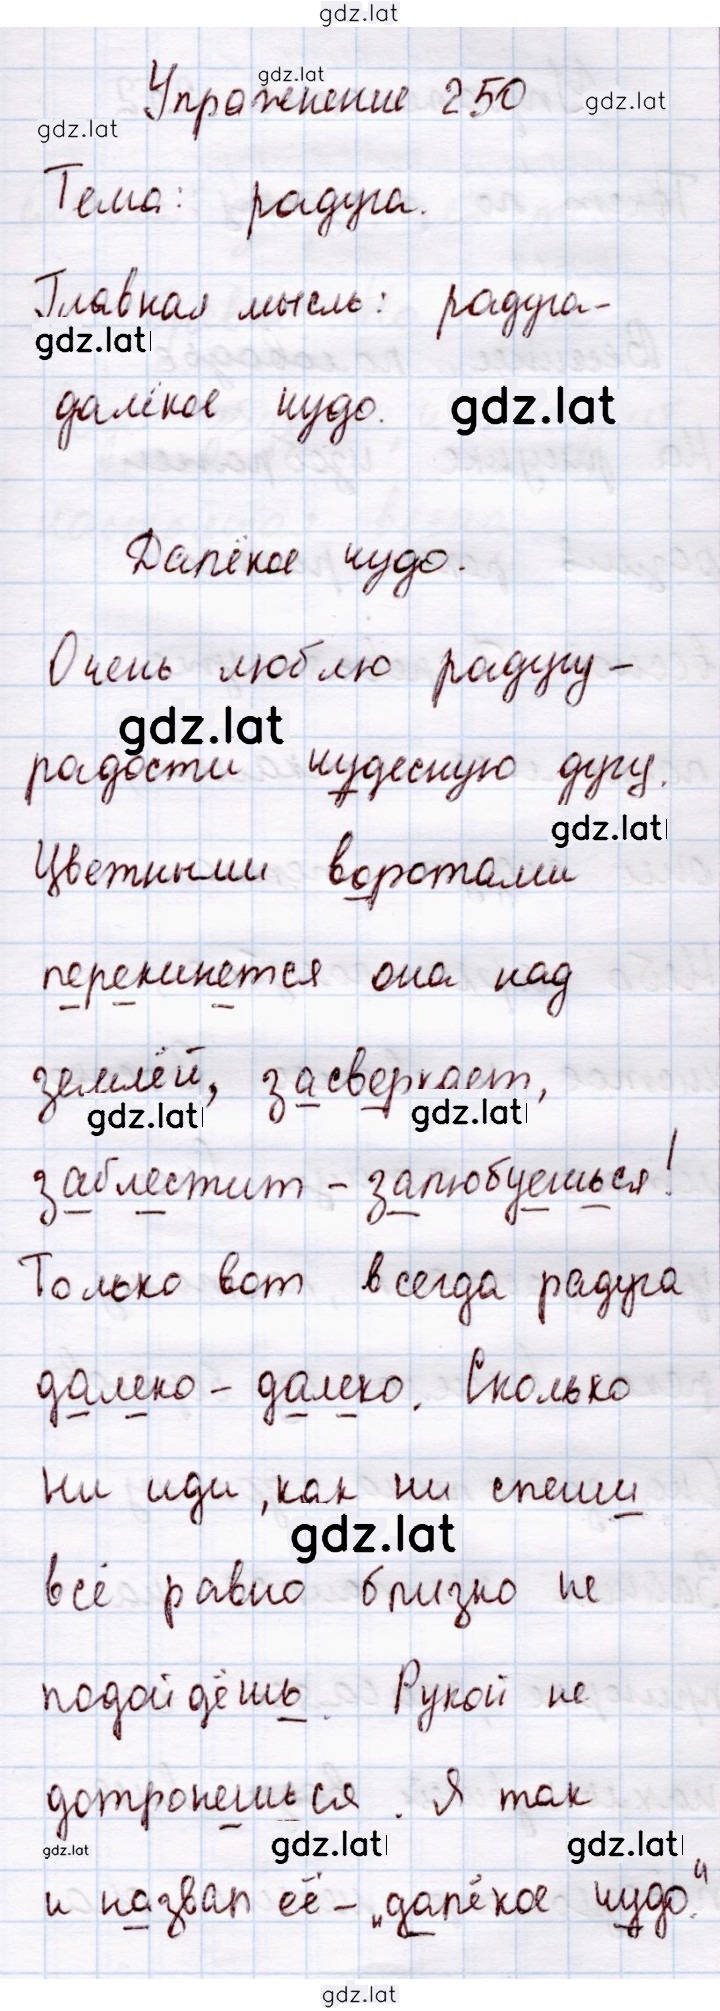 gdz.lat
Упражнение 250
gdz.lat
gdz.lat
gdz.lat
Тема: радуга.
Главная мысль: радуга-
gdz.lat
далёкое чудо.
gdz.lat
Далёкое чудо.
Очень люблю радугу -
gdz.lat
радости чудесную дугу.
gdz.lat
Цветными воротами
перекинется она над
землёй, засверкает,
gdz.lat
gdz.lat
заблестит - залюбуешься!
Только вот всегда радуга
далеко - далеко. Сколько
ни иди, как ни спеши
gdz.lat
всё равно близко не
подойдёшь. Рукой не
дотронешься. Я так
gdz.lat
gdz.lat
gdz.lat
и назвал её - „далёкое чудо."
gdz.lat